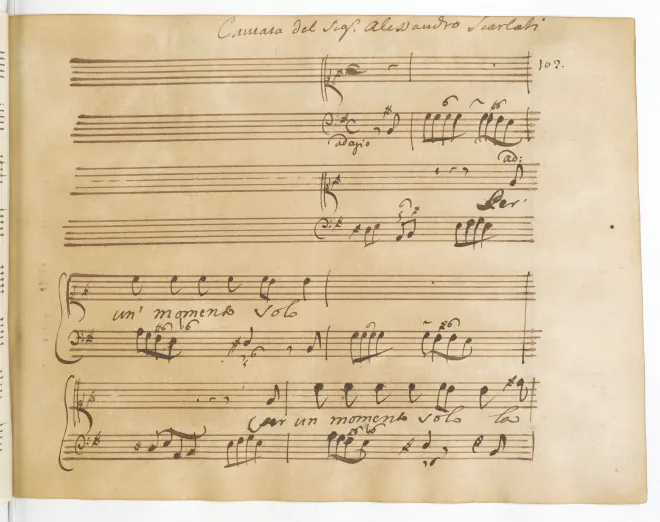 Cantata del Sig.r Alessandro Scarlati
102.
6 6
adagio
ad:
Per
un' momento solo
6 6 6
6
per un momento solo la
6 6